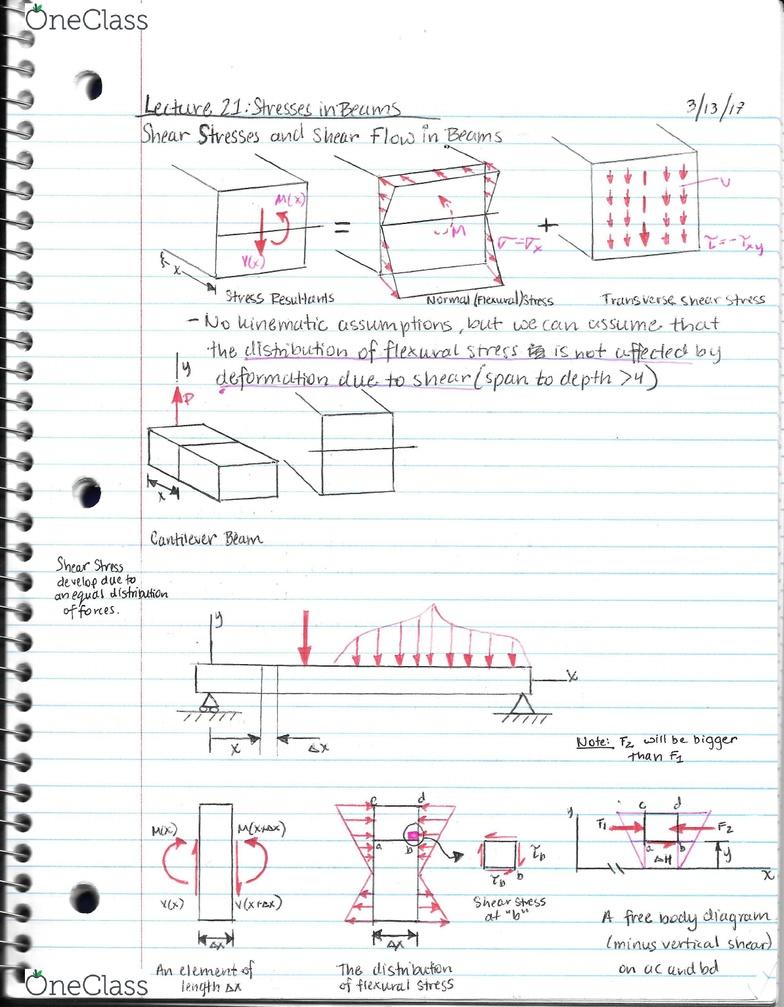 OneClass
Lecture 21: Stresses in Beams
3/13/17
Shear Stresses and Shear Flow in Beams
M(x)
V(x)
x
=
M
σ=σx
+
V
τ=-τxy
Stress Resultants
Normal (Flexural) Stress
Transverse shear stress
- No kinematic assumptions, but we can assume that
the distribution of flexural stress is not affected by
deformation due to shear (span to depth >4)
y
P
x
Cantilever Beam
Shear Stress
develop due to
an equal distribution
of forces.
y
x
x
Δx
Note: F2 will be bigger
than F1
M(x)
M(x+Δx)
V(x)
V(x+Δx)
Δx
An element of
length Δx
c
d
a
b
Δx
The distribution
of flexural stress
τb
τb
b
Shear stress
at "b"
y
c
d
F1
F2
a
b
ΔH
y
x
A free body diagram
(minus vertical shear)
on ac and bd
OneClass